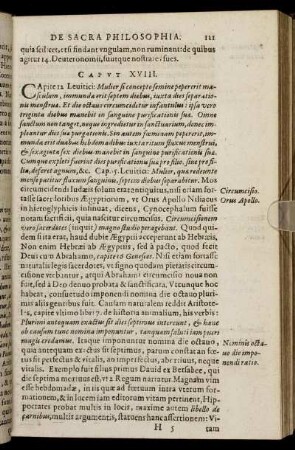 DE SACRA PHILOSOPHIA.
quia scilicet, etsi findant vngulam, non ruminant: de quibus
agitur 14. Deuteronomii, suntque nostrates sues.
CAPVT XVIII.
CApite 12. Leuitici: Mulier si concepto semine pepererit ma-
sculum, immunda erit septem diebus, iuxta dies separatio-
nis menstruæ. Et die octauo circumcidetur infantulus: ipsa vero
triginta diebus manebit in sanguine purificationis suæ. Omne
sanctum non tanget, neque ingredietur in sanctuarium, donec im-
pleantur dies suæ purgationis. Sin autem fœminam pepererit, im-
munda erit duabus
& sexaginta sex diebus manebit in sanguine purificationis suæ.
Cumque expleti fuerint dies purificationis suæ pro filio, siue pro fi-
lia, deferet agnum, &c. Cap. 15. Leuitici: Mulier, quæ redeunte
mense patitur fluxum sanguinis, septem diebus separabitur. Mos
circumcidendi Iudæis solum
Circumcisio.
tasse sacerdotibus Ægyptiorum, vt Orus Apollo Niliacus
Orus Apollo.
in hieroglyphicis suis, dicens, Cynocephalum fuisse
notam sacrificii, quia nascitur circumcisus. Circumcisionem
vero sacerdotes (inquit) magno studio peragebant. Quod qui-
dem si ita erat, haud dubie Ægyptii acceperant ab Hebræis,
Non enim Hebræi ab Ægyptiis, sed à pacto, quod fecit
Deus cum Abrahamo, capitere Geneseos. Nisi etiam fortasse
naturalis legis sacerdotes, vt signo quodam pietatis circum-
cisione vtebantur, atqui Abrahami circumcisio noua non
fuit, sed à Deo denuo probata & sanctificata. Vtcunque hoc
habeat, consueuisse imponendi nomina die octauo pluri-
mis aliis gentibus fuit. Cuius rationem reddit Aristote-
les, capite vltimo libro 7. de historia animalium, his verbis:
Plurimi antequam excedat sit dies septimus intereunt, & hanc
ob causam tunc nomina imponuntur, tanquam saluti iam puero
magis credamus. Itaque nomina imponuntur die octauo,
Nominis octa-
quia antequam exactus sit septimus, parum constat an fœ-
uo die impo-
tus vitalis, an imperfectus, abortiuus, neque enixus
nendi ratio.
fuerit. Exemplo fuit filius primus Dauid ex Bersabee, qui
die septima mortuus est, vt 2. Regum narratur. Magnam vim
esse hebdomadæ, in iis, quæ ad fœtuum intra vterum for-
mationem, & in lucem iam editorum vitam pertinent, Hip-
pocrates probat multis in locis, maxime autem libello de
carnibus, multum innitens hanc assertionem: Vi-
H 5
tam